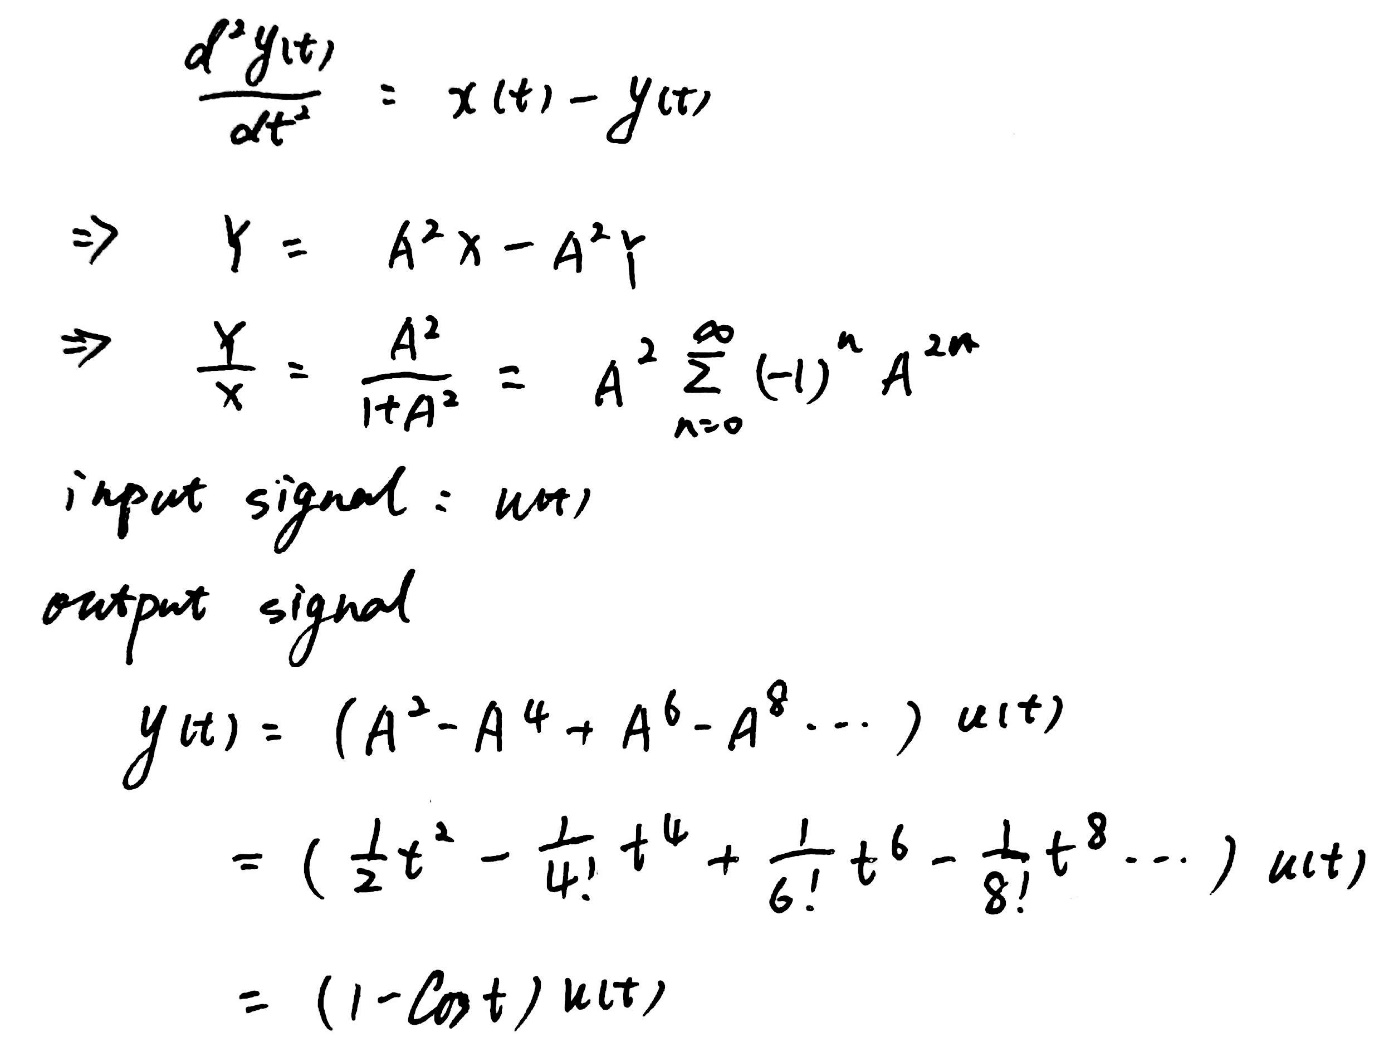 d²y(t)/dt² = x(t) - y(t)
⇒ Y = A²X - A²Y
⇒ Y/X = A²/(1+A²) = A² ∑_{n=0}^{∞} (-1)ⁿ A²ⁿ
input signal: u(t)
output signal
y(t) = (A² - A⁴ + A⁶ - A⁸ ....) u(t)
= (1/2 t² - 1/4! t⁴ + 1/6! t⁶ - 1/8! t⁸ ...) u(t)
= (1 - Cos t) u(t)